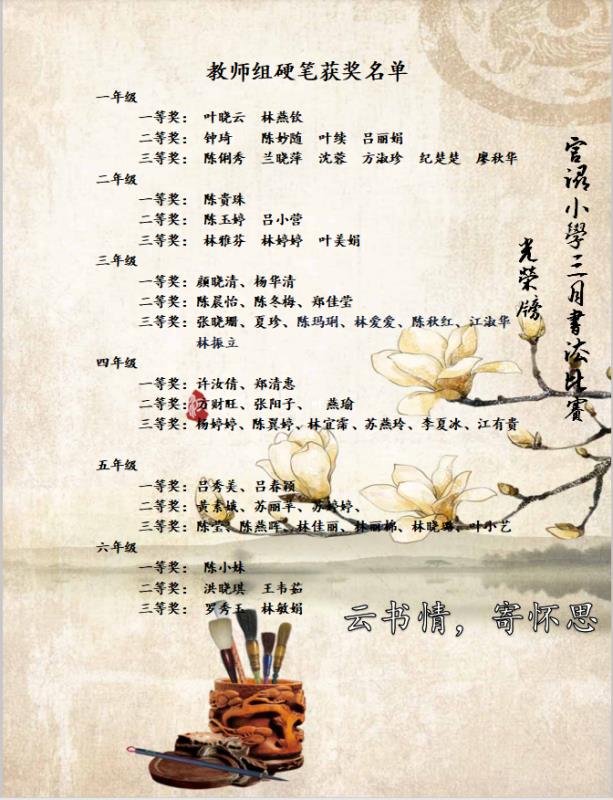 教师组硬笔获奖名单
一年级
一等奖： 叶晓云 林燕钦
二等奖： 钟琦 陈妙随 叶续 吕丽娟
三等奖： 陈俐秀 兰晓萍 沈蓉 方淑珍 纪楚楚 廖秋华
二年级
一等奖： 陈贵珠
二等奖： 陈玉婷 吕小营
三等奖： 林雅芬 林婷婷 叶美娟
三年级
一等奖：颜晓清、杨华清
二等奖：陈晨怡、陈冬梅、郑佳莹
三等奖：张晓珊、夏珍、陈玛琍、林爱爱、陈秋红、江淑华
林振立
四年级
一等奖：许汝倩、郑清惠
二等奖：方财旺、张阳子、 燕瑜
三等奖：杨婷婷、陈翼婷、林宜霈、苏燕玲、李夏冰、江有贵
五年级
一等奖：吕秀美、吕春颖
二等奖：黄素娥、苏丽苹、苏婷婷、
三等奖：陈莹、陈燕晖、林佳丽、林丽棉、林晓璐、叶小艺
六年级
一等奖： 陈小妹
二等奖： 洪晓琪 王韦茹
三等奖： 罗秀玉 林敏娟
官浔小學三月書法比賽
光榮榜
云书情，寄怀思